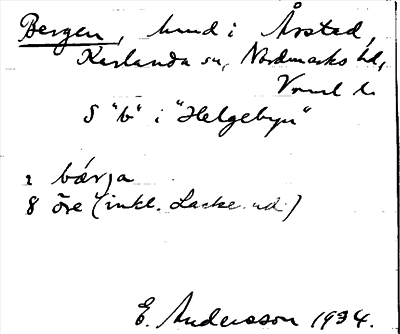 Bergen, hmd i Årstad,
Karlanda sn, Nordmarks hd,
Vrml l.
S "b" i "Helgebyn"
1 bærja
8 öre (inkl. Lacke ud)
E. Andersson 1934.